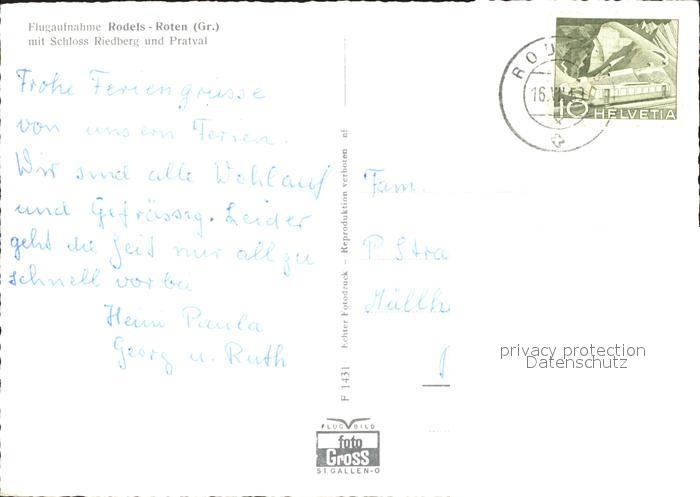 Flugaufnahme Rodels - Roten (Gr.)
mit Schloss Riedberg und Pratval
Frohe Feriengrüsse
von unsern Ferien.
Wir sind alle Wohlauf
und Gefrässig. Leider
geht die Zeit nur all zu
schnell vorbei
Heini Paula
Georg u. Ruth
F 1431 Echter Fotodruck – Reproduktion verboten nf
FLUGBILD
foto
Gross
ST. GALLEN-O
ROD
16.VII.
10 HELVETIA
Fam.
P. Stra
Müllh
privacy protection
Datenschutz